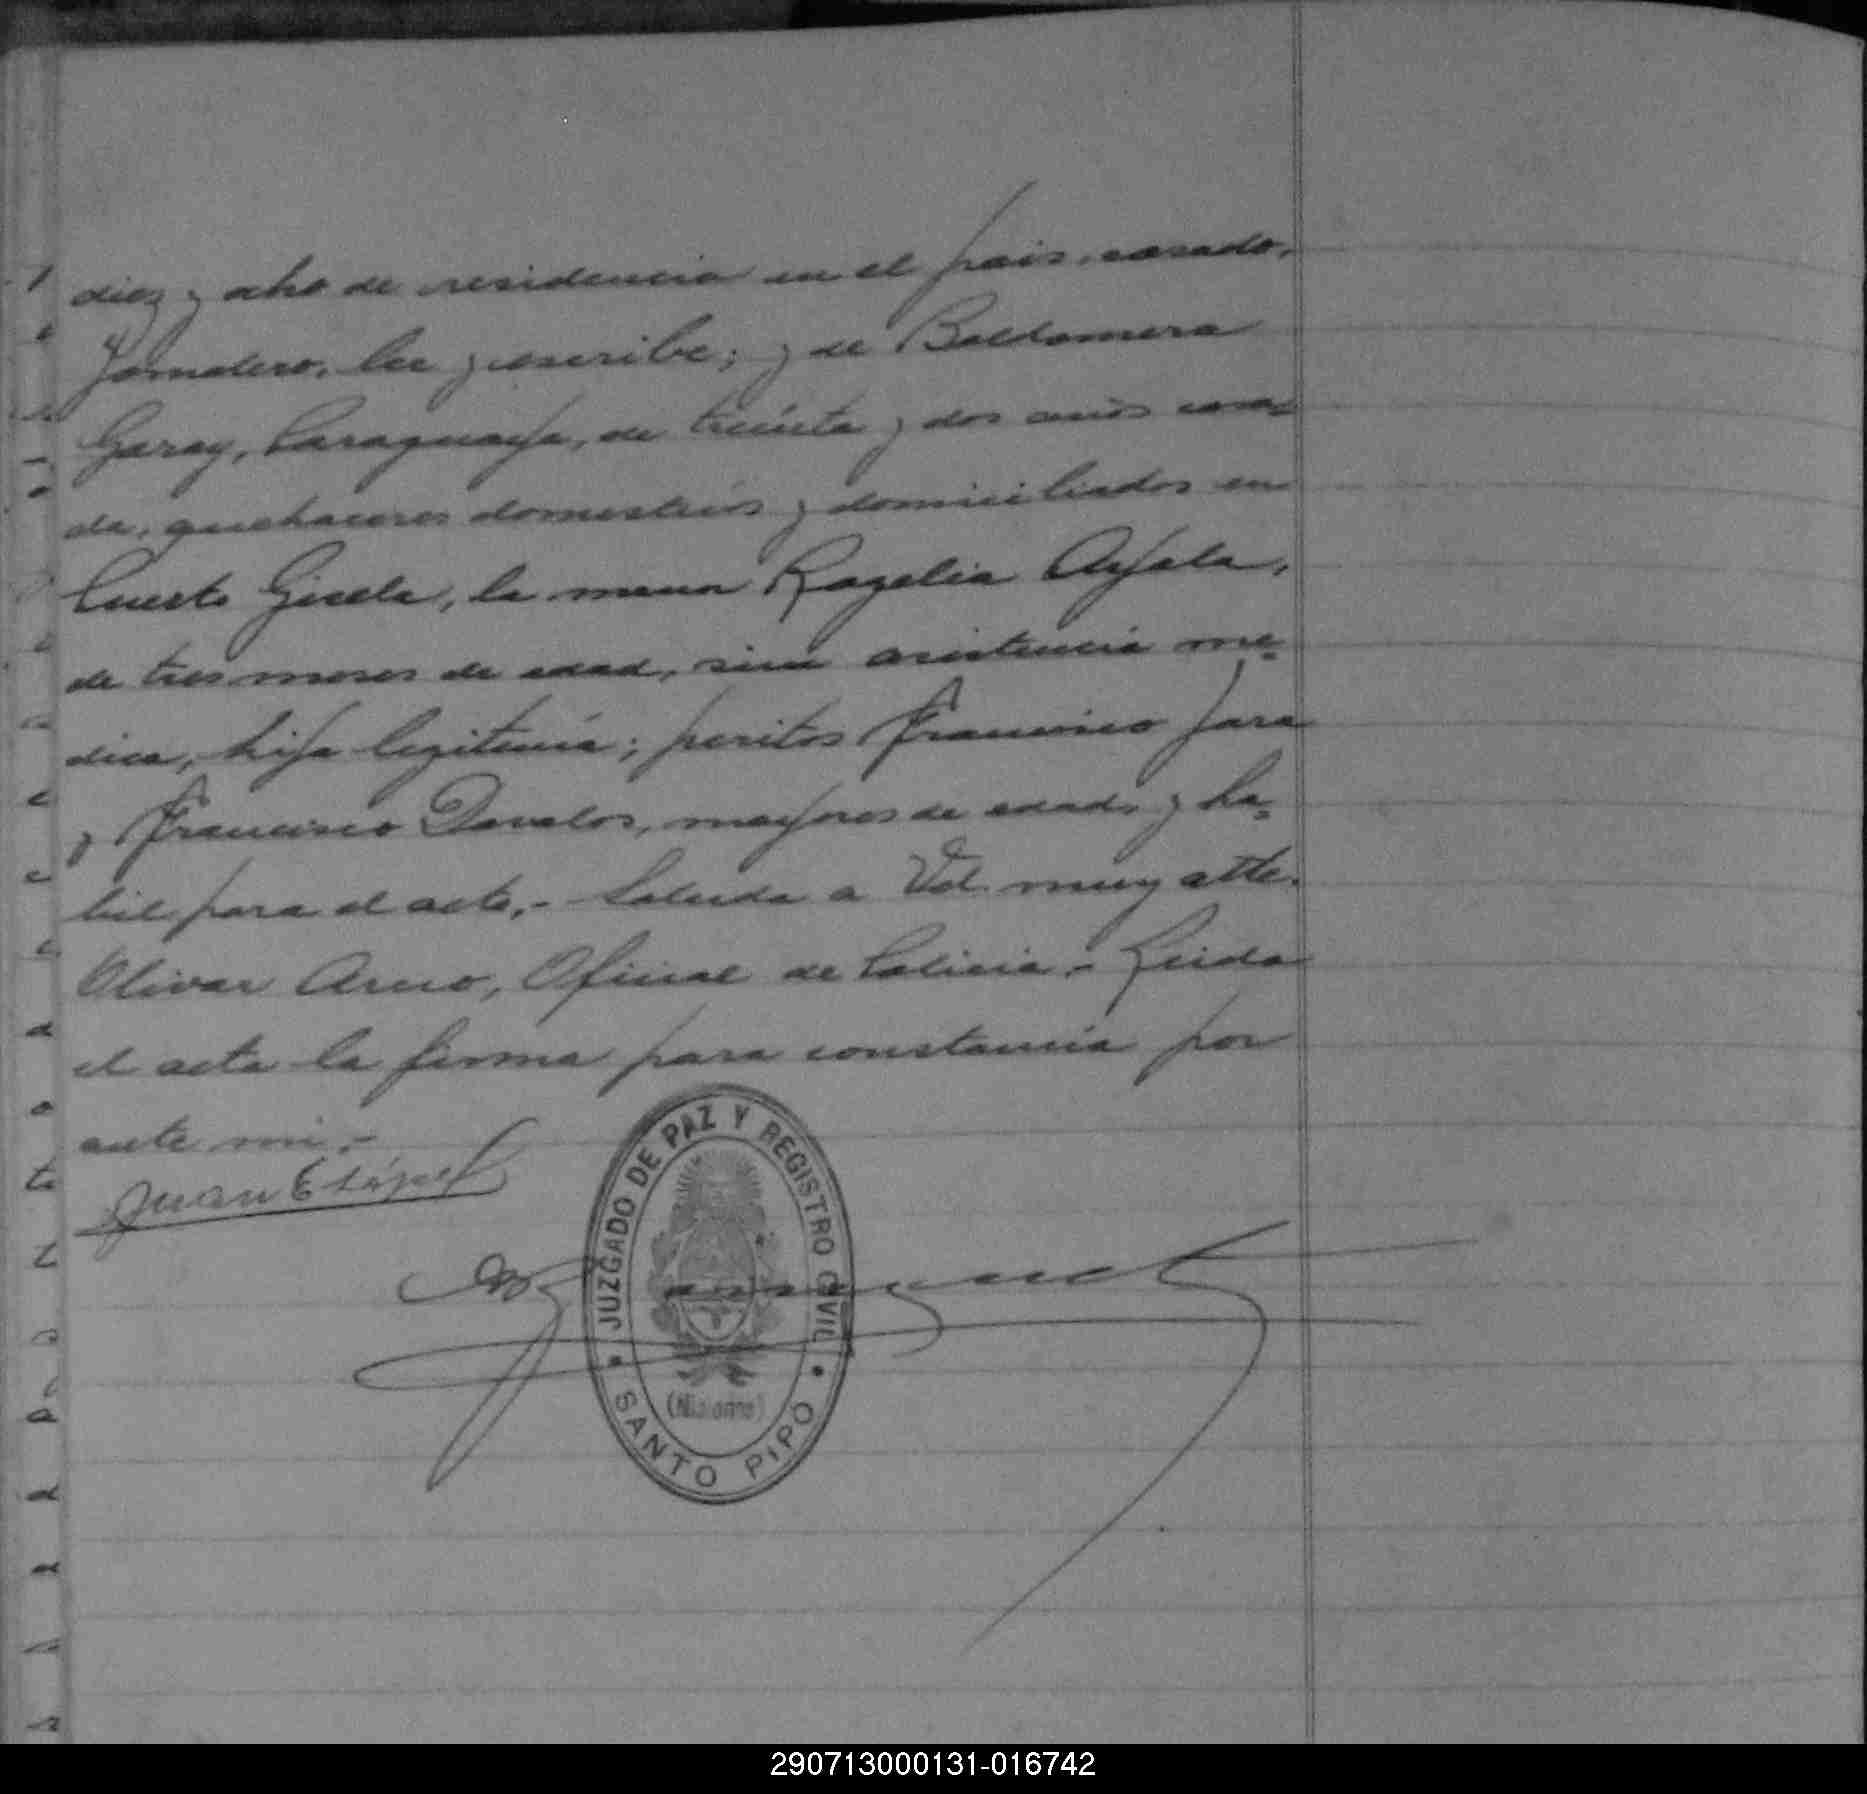 diez y oho de residencia en el pais, casado,
Jornalero, lee y escribe; y de Baldomera
Garay, Paraguaya, de treinta y dos años casa-
da, quehaceres domesticos y domiciliados en
Puerto Gisela, la menor Rogelia Ayala,
de tres meses de edad, sin asistencia me-
dica, hija legitima; peritos Francisco Jara
y Francisco Davalos, mayores de edad y ha-
bil para el acto.- Saluda a Vd. muy atte.
Olivar Arno, Oficial de Policia.- Leida
el acta la firma para constancia por
ante mi.-
Juan E López
JUZGADO DE PAZ Y REGISTRO CIVIL
(Misiones)
SANTO PIPÓ
290713000131-016742